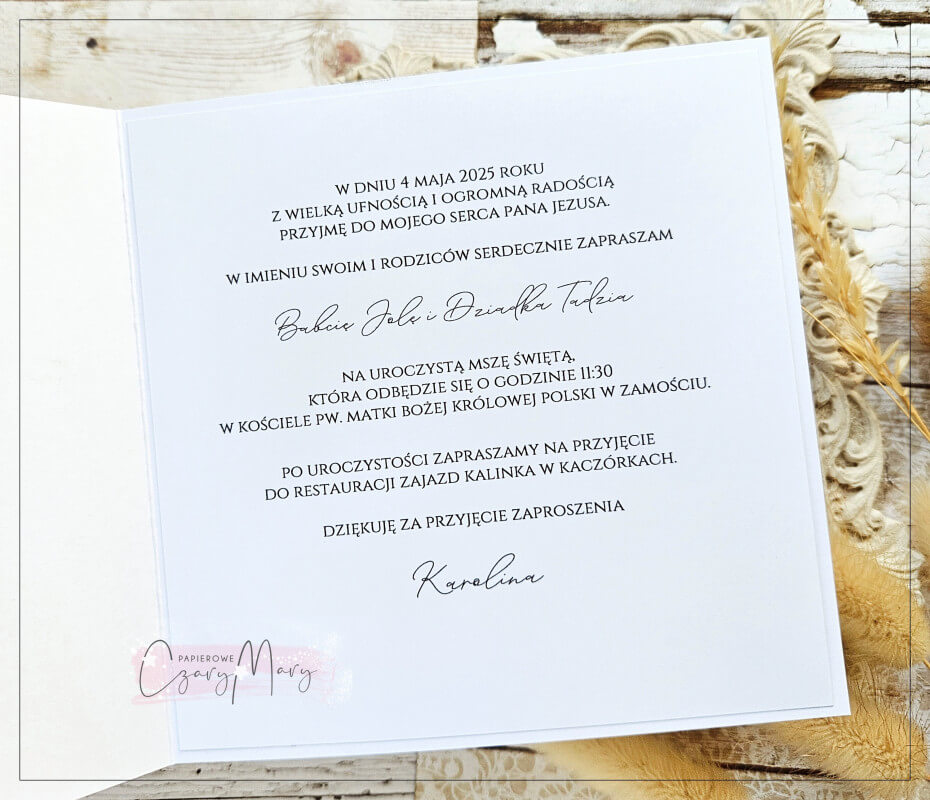 W DNIU 4 MAJA 2025 ROKU
Z WIELKĄ UFNOŚCIĄ I OGROMNĄ RADOŚCIĄ
PRZYJMĘ DO MOJEGO SERCA PANA JEZUSA.
W IMIENIU SWOIM I RODZICÓW SERDECZNIE ZAPRASZAM
Babcię Jolę i Dziadka Tadzia
NA UROCZYSTĄ MSZĘ ŚWIĘTĄ,
KTÓRA ODBĘDZIE SIĘ O GODZINIE 11:30
W KOŚCIELE PW. MATKI BOŻEJ KRÓLOWEJ POLSKI W ZAMOŚCIU.
PO UROCZYSTOŚCI ZAPRASZAMY NA PRZYJĘCIE
DO RESTAURACJI ZAJAZD KALINKA W KACZÓRKACH.
DZIĘKUJĘ ZA PRZYJĘCIE ZAPROSZENIA
Karolina
PAPIEROWE
Czary Mary